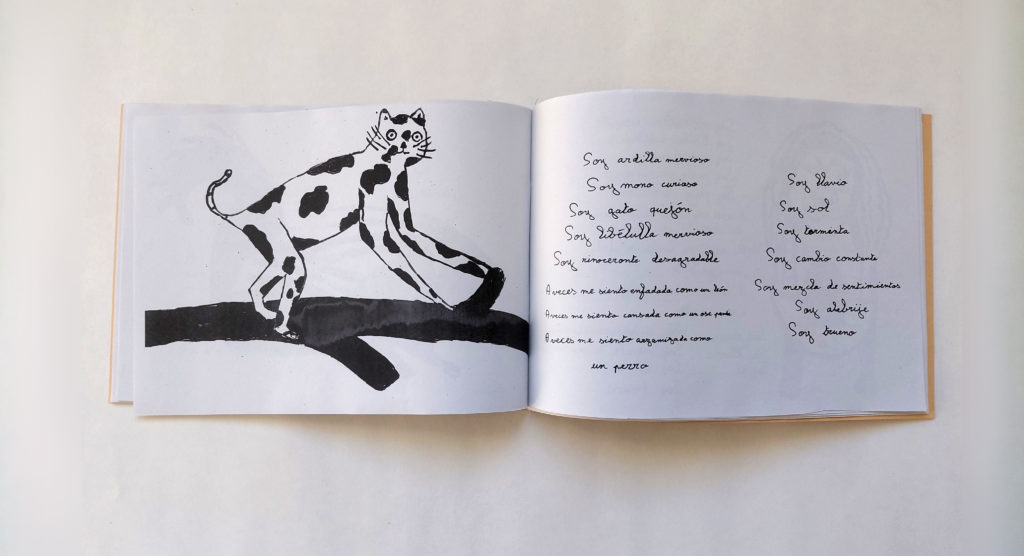 Soy ardilla nervioso
Soy mono curioso
Soy gato quejón
Soy libélulla nervioso
Soy rinoceronte desagradable
A veces me siento enfadada como un león
A veces me siento cansada como un oso
A veces me siento como
un perro
Soy lluvia
Soy sol
Soy tormenta
Soy cambio constante
Soy mezcla de sentimientos
Soy alebrije
Soy trueno